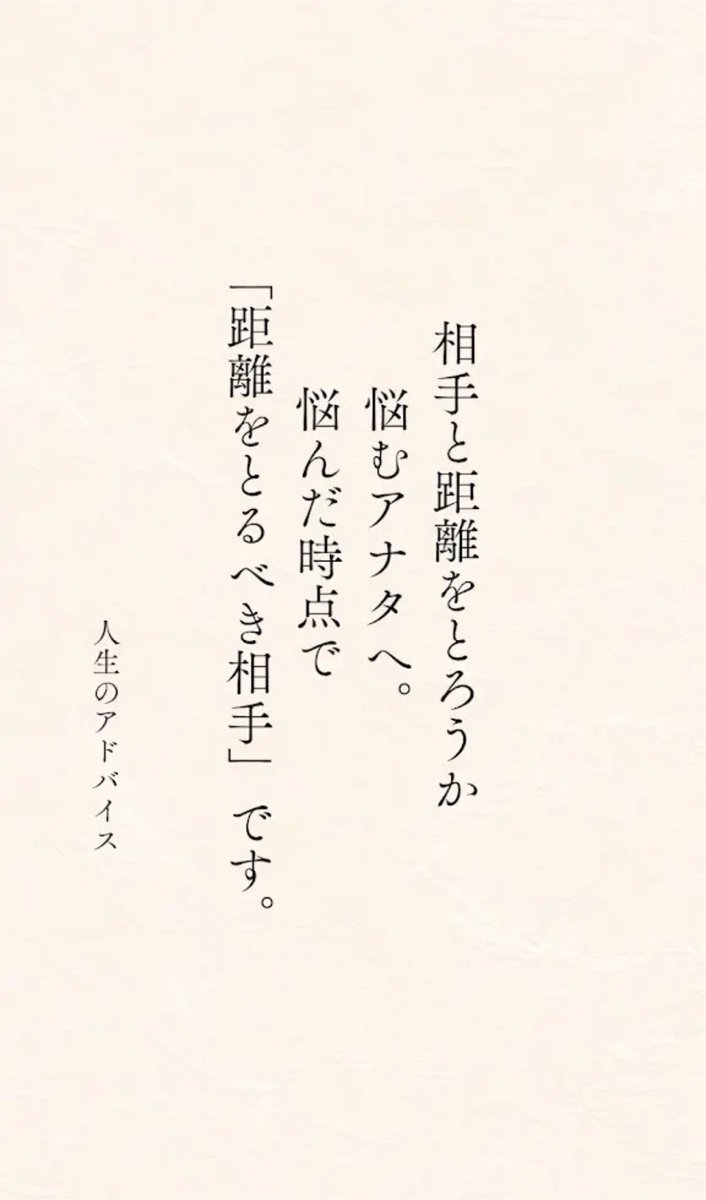 相手と距離をとろうか
悩むアナタへ。
悩んだ時点で
「距離をとるべき相手」です。
人生のアドバイス